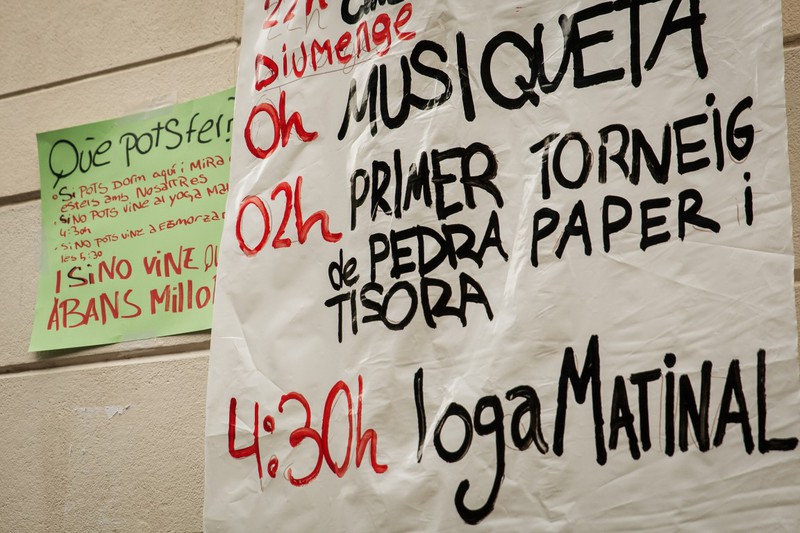 Què pots fer?
· Si POTS DORM AQUÍ i MIRA
ESTELS AMB NOSALTRES
· Si NO POTS VINE AL YOGA MA
4:30h
· Si NO POTS VINE A ESMORZA
les 4:30
I Si NO VINE
ABANS Millo
22h
Diumenge
0h MUSIQUETA
02h PRIMER TORNEIG
de PEDRA PAPER i
TISORA
4:30h Ioga MATINAL